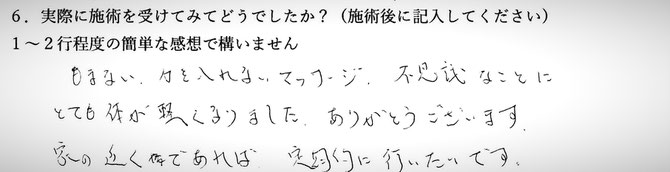 6．実際に施術を受けてみてどうでしたか？（施術後に記入してください）
1～2行程度の簡単な感想で構いません
もまない、力を入れないマッサージ、不思議なことに
とても体が軽くなりました。ありがとうございます。
家の近く であれば 定期的に行いたいです。